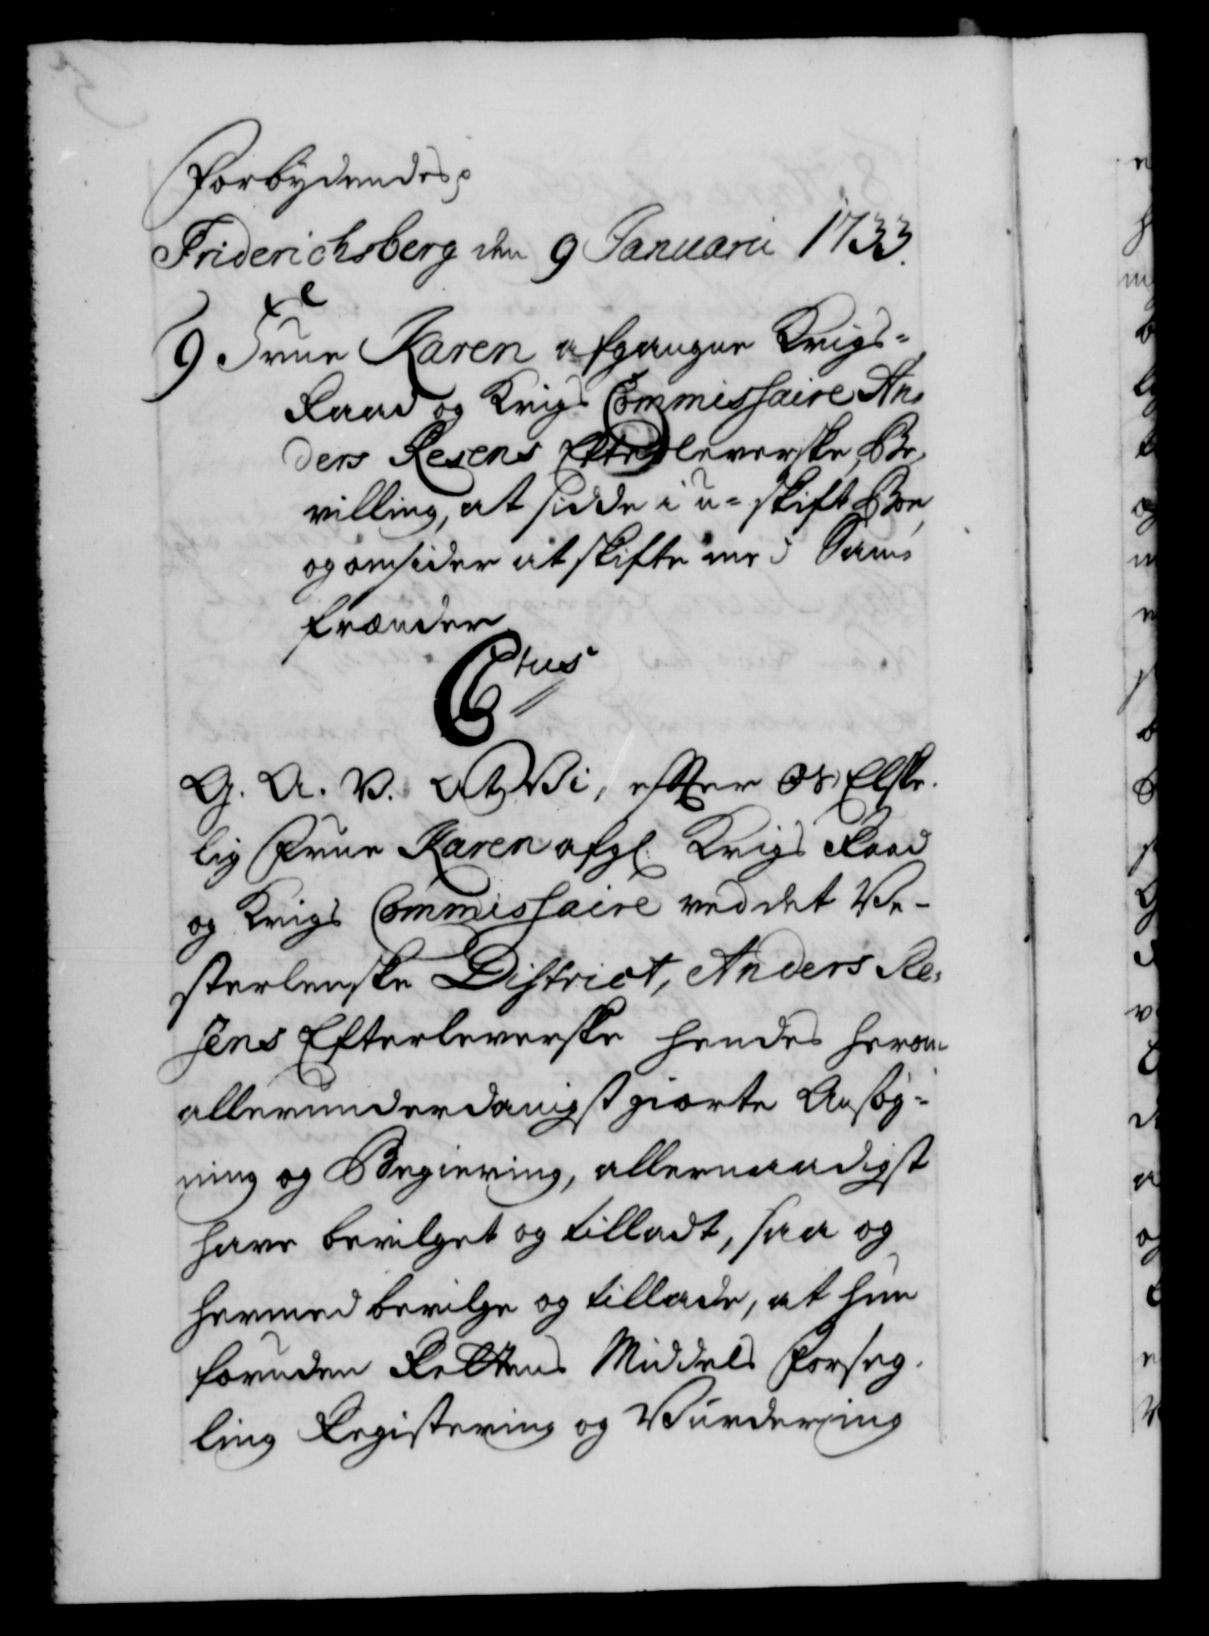 Forbydendes p
Friderichsberg den 9 Januarii 1733.
9 Frue Karen afgangne Krigs=
Raad og Krigs Commissaire An=
ders Resens Efterleverske, Be=
villing, at sidde i u=skift Boe,
og omsider at skifte med Sam=
frænder
Ctus
G. A. V. At Vi, efter Os Elske=
lig Frue Karen afgl. Krigs Raad
og Krigs Commissaire ved det Ve=
sterlenske District, Anders Re=
sens Efterleverske hendes herom
allerunderdanigst giorte Ansøg=
ning og Begiering, allernaadigst
have bevilget og tilladt, saa og
hermed bevilge og tillade, at hun
foruden Rettens Middels Forseg=
ling Registering og Vurdering